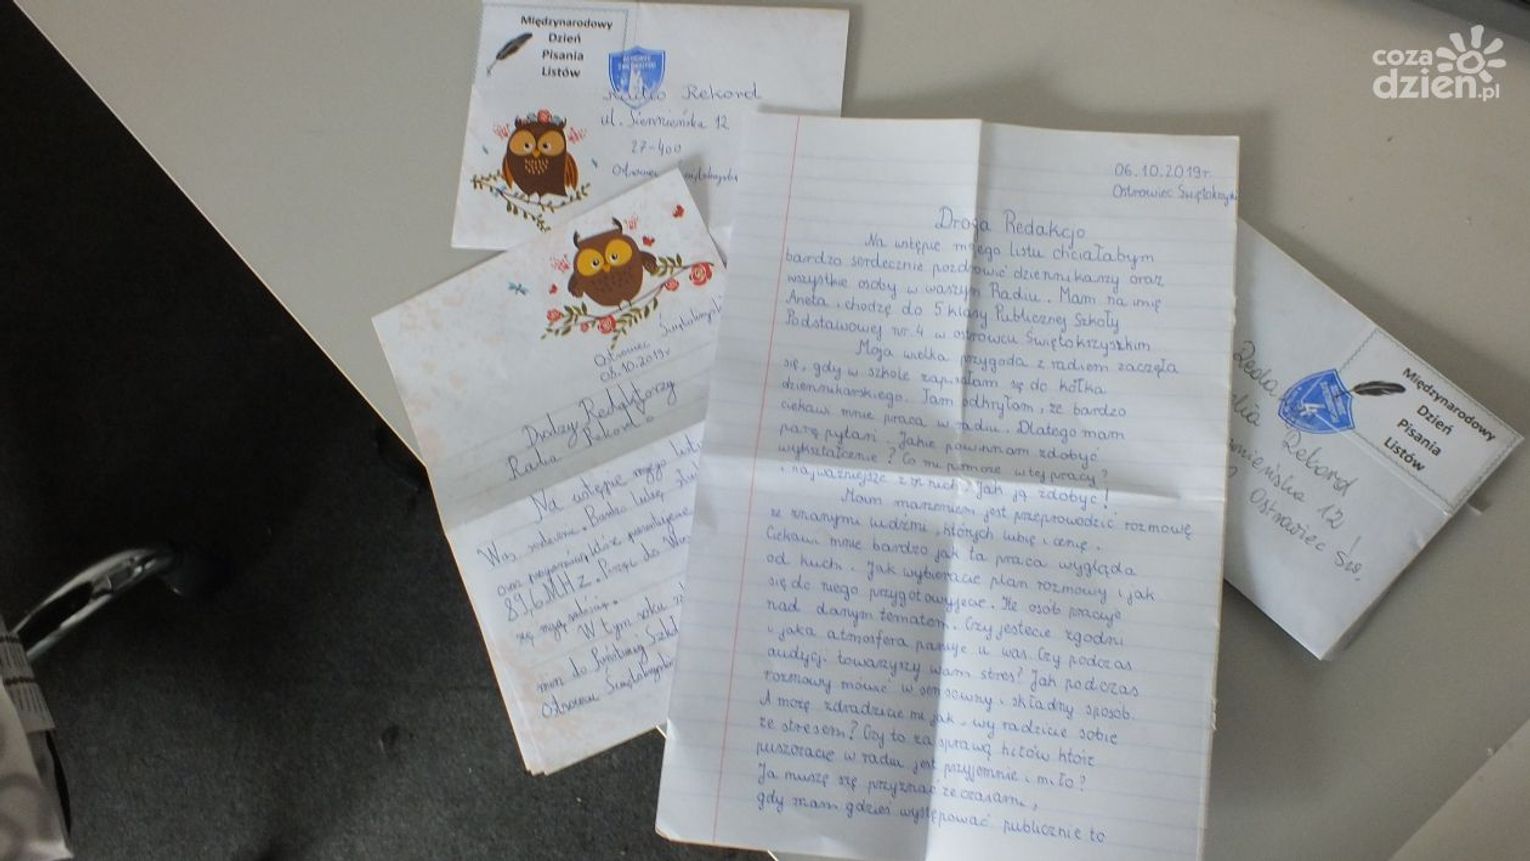 coza
dzien.pl
Międzynarodowy
Dzień
Pisania
Listów
Radio Rekord
ul. Siennieńska 12
27-400
Ostrowiec Świętokrzyski
Ostrowiec Świętokrzyski
06.10.2019r
Drodzy Redaktorzy
Radia Rekord
Na wstępie mojego listu
Was serdecznie. Bardzo lubię
oraz
89,6 MHz.
W tym roku
Ostrowcu Świętokrzyskim
06.10.2019r.
Ostrowiec Świętokrzyski
Droga Redakcjo
Na wstępie mojego listu chciałabym
bardzo serdecznie pozdrowić dziennikarzy oraz
wszystkie osoby w waszym Radiu. Mam na imię
Aneta, chodzę do 5 klasy Publicznej Szkoły
Podstawowej nr. 4 w ostrowcu Świętokrzyszkim
Moja wielka przygoda z radiem zaczęła
się, gdy w szkole zapisałam się do kółka
dziennikarskiego. Tam odkryłam, że bardzo
ciekawi mnie praca w radiu. Dlatego mam
parę pytań. Jakie powinnam zdobyć
wykształcenie? Co mi pomoże w tej pracy?
i najważniejsze z tych Jak ją zdobyć!
Moim marzeniem jest przeprowadzić rozmowę
ze znanymi ludźmi, których lubię i cenię.
Ciekawi mnie bardzo jak ta praca wygląda
od kuchi. Jak wybieracie plan rozmowy i jak
się do niego przygotowyjecie. Ile osób pracuje
nad danym tematem. Czy jesteście zgodni
i jaka atmosfera panuje u was. Czy podczas
audycji towarzyszy wam stres? Jak podczas
rozmowy mówić w sensowny i składny sposób.
A możę zdradzicie mi jak, wy radzicie sobie
ze stresem? Czy to za sprawą hitów któr
puszczacie w radiu jest przyjemnie i miło?
Ja muszę się przyznać że czasami,
gdy mam gdzieś występować publicznie to
Międzynarodowy
Dzień
Pisania
Listów
Rekord
12
Ostrowiec Św.